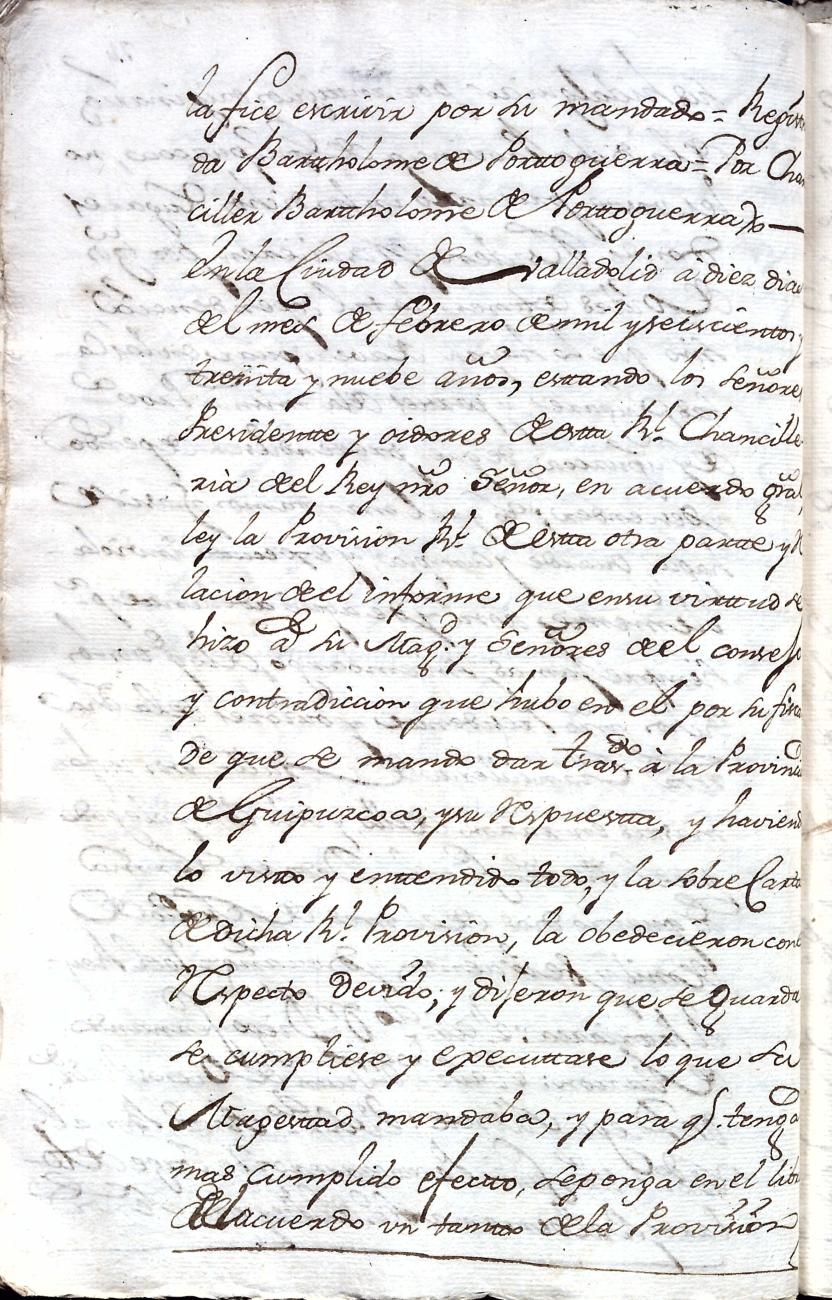 la fice escrivir por su mandado = Regist
da Bartholome de Porttoguerra = Por Chan
ciller Bartholome de Porttoguerra
En la Ciudad de Valladolid à diez dias
del mes de febrero de mil y seiscientos y
treinta y nuebe años, estando los señores
Presidentte y oidores de estta Rl. Chancille
ria del Rey nro Señor, en acuerdo gral,
ley la Provision Rl. de estta otra partte y R
lacion de el informe que en su virttud se
hizo à su Magd. y Señores del consejo
y contradiccion que hubo en el por su fisca
de que se mando dar trasdo. à la Provinci
de Guipuzcoa, y su Respuestta, y haviend
lo visto y enttendido todo, y la sobre Cartta
de dicha Rl. Provision, la obedecieron con e
Respecto Devido, y dijeron que se guarda
se cumpliese y executtase lo que su
Magestad mandaba, y para q. tenga
mas cumplido efectto, se ponga en el libr
del acuerdo un tanto de la Provision